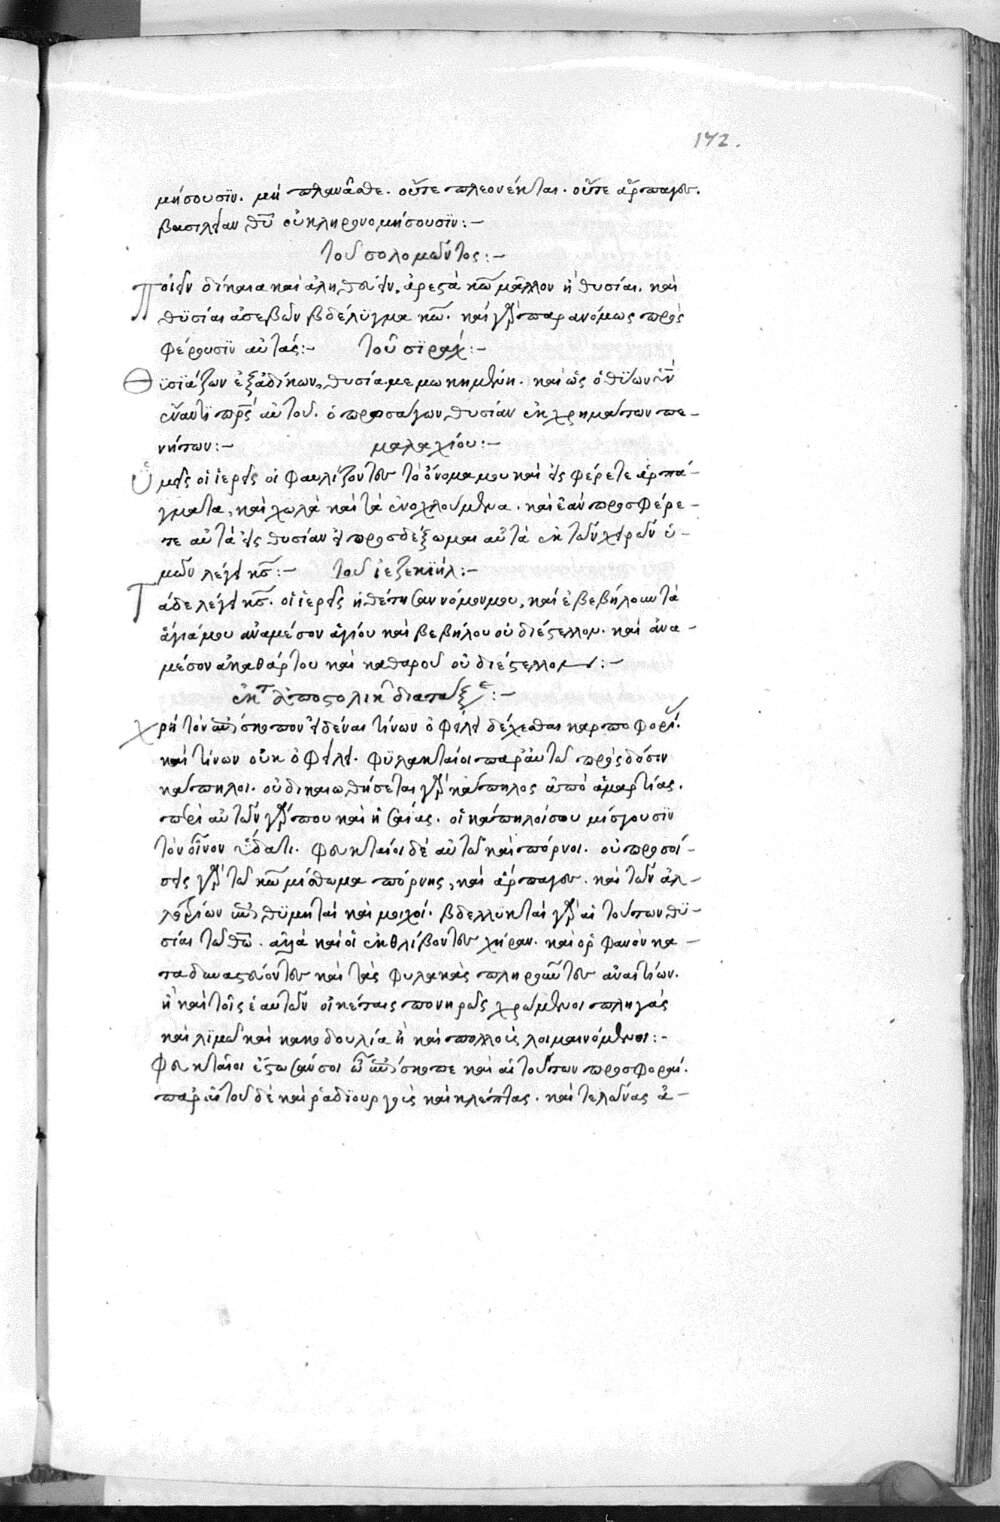 172.
μήσουσϊν. μὴ πλανᾶσθε. οὔτε πλεονέκται. οὔτε ἅρπαγες.
βασιλείαν θῦ οὐ κληρονομήσουσϊν:–
τοῦ σολομῶντος:–
Ποιεῖν δίκαια καὶ ἀληθεύειν, ἀρεστὰ κῶ μᾶλλον ἢ θυσίαι. καὶ
θϋσίαι ἀσεβῶν βδέλϋγμα κῶ. καὶ γὰρ παρανόμως προσ
φέρουσϊν αὐτάς:– τοῦ σϊράχ:–
Θϋσϊάζων ἐξ ἀδίκων, θυσία μεμωκημένη. καὶ ὡς ὁ θϋων ϋν
ἔναντι πρς αὐτοῦ. ὁ προσάγων θυσίαν ἐκ χρημάτων πε–
νήτων:– μαλαχίου:–
Ὑμεῖς οἱ ἱερεῖς οἱ φαυλίζοντες τὸ ὄνομα μου καὶ εἰσφέρετε ἁρπά–
γματα, καὶ χωλὰ καὶ τὰ ἐνοχλούμενα. καὶ ἐὰν προσφέρε–
τε αὐτὰ εἰς θυσίαν εἰ προσδέξωμαι αὐτὰ ἐκ τῶν χειρῶν ὑ–
μῶν λέγει κς:– τοῦ ἰεζεκϊήλ:–
Τάδε λέγει κς. οἱ ἱερεῖς ἠθέτησαν νόμον μου, καὶ ἐβεβήλουν τὰ
ἅγιά μου ἀναμέσον ἁγίου καὶ βεβήλου οὐ διέστελλον. καὶ ἀνα–
μέσον ἀκαθάρτου καὶ καθαροῦ οὐ διέστελλον:–
ἐκ τ ἀποστολικ διατάξε:–
Χρὴ τὸν ἐπίσκοπον εἰδέναι τίνων ὀφείλει δέχεσθαι καρποφορί.
καὶ τίνων οὐκ ὀφείλει. φϋλακταῖοι παρ' αὐτῶ πρὸς δόσιν
κάπηλοι. οὐ δικαιωθήσεται γὰρ κάπηλος ἀπὸ ἁμαρτίας.
περὶ αὐτῶν γάρ που καὶ ἡσαΐας. οἱ κάπηλοί σου μίσγουσϊν
τὸν οἶνον ὕδατι. φευκταῖοι δὲ αὐτῶ καὶ πόρνοι. οὐ προσοί–
σεις γὰρ τῶ κῶ μίσθωμα πόρνης, καὶ ἅρπαγες. καὶ τῶν ἀλ–
λοτρίων ἐπιθϋμηταὶ καὶ μοιχοί. βδελλυκταὶ γὰρ αἱ τούτων θϋ–
σίαι τῶ θῶ. ἀλλὰ καὶ οἱ ἐκθλίβοντες χήραν. καὶ ὀρφανὸν κα–
ταδυναστεύοντες καὶ τὰς φυλακὰς πληροῦντες ἀναιτίων.
ἢ καὶ τοῖς ἑαυτῶν οἰκέταις πονηρῶς χρώμενοι πληγαῖς
καὶ λϊμῶ καὶ κακοδουλία ἢ καὶ πολλοὺς λοιμαινόμενοι:–
Φευκταῖοι ἔστωσάν σοι ὦ ἐπίσκοπε καὶ αἱ τούτων προσφοραί.
παραιτοῦ δὲ καὶ ῥαδϊουργοὺς καὶ κλέπτας. καὶ τελώνας ἀ–